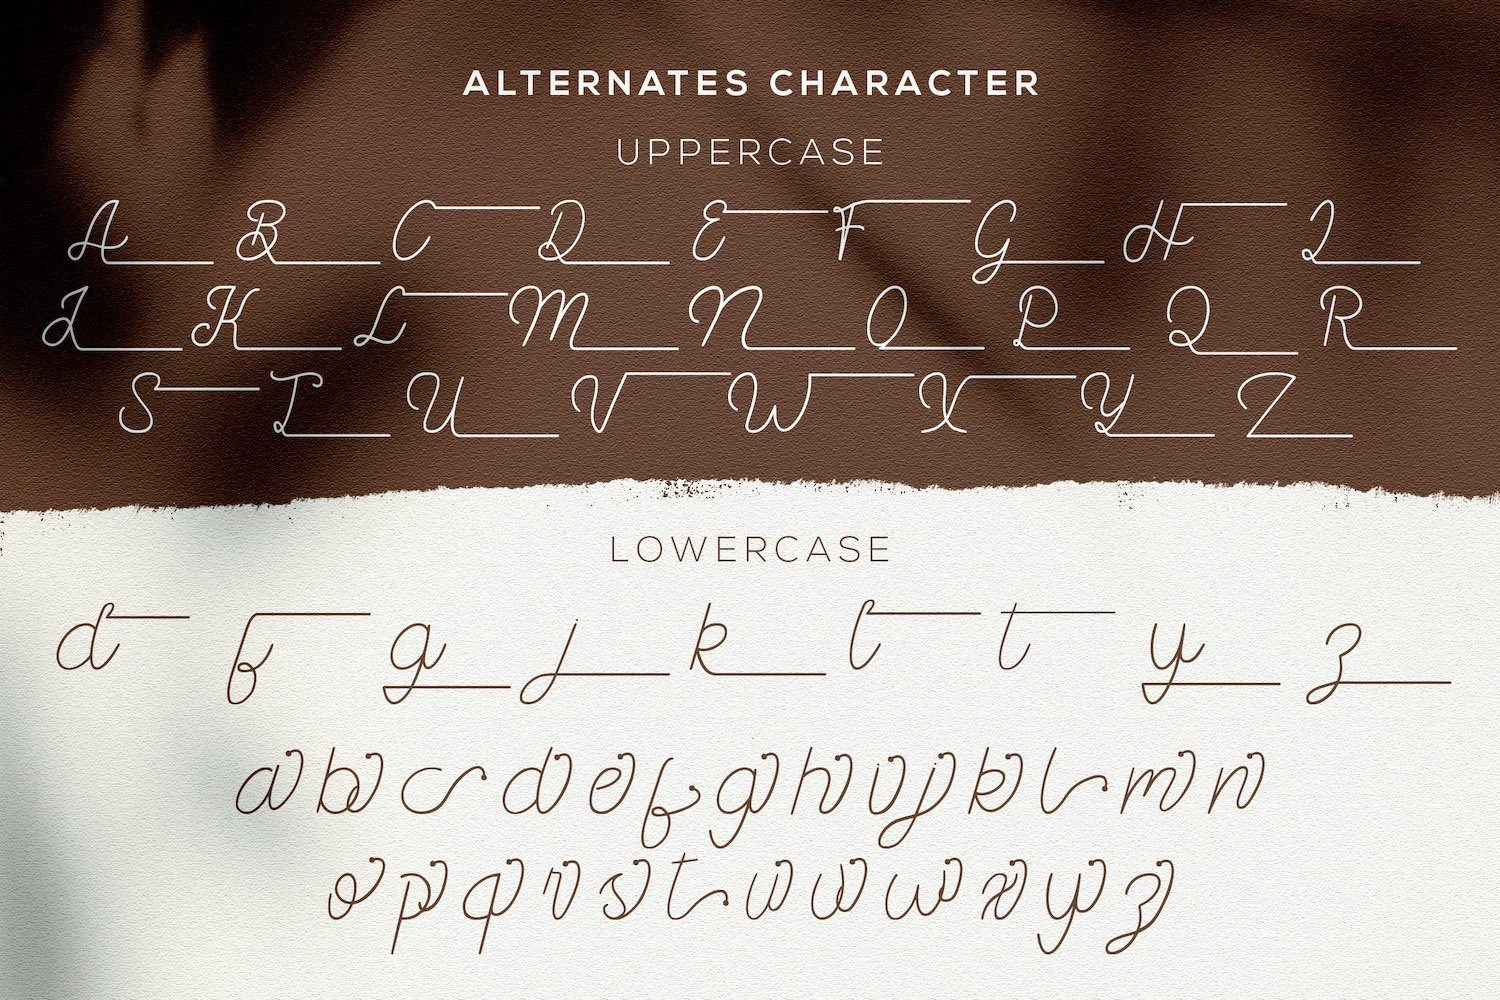 ALTERNATES CHARACTER
UPPERCASE
A B C D E F G H I
J K L M N O P Q R
S T U V W X Y Z
LOWERCASE
d f g j k l t y z
a b c d e f g h i j k l m n
o p q r s t u v w x y z